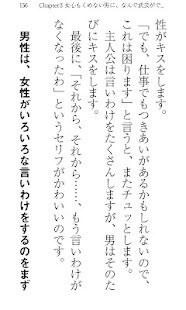 156　Chapter3 女心もくめない男に、なんで武装がで、
性がキスをします。
「でも、仕事でもつきあいがあるかもしれないので、
これは困ります」と言うと、またチュッとします。
主人公は言いわけをたくさんしますが、男はそのた
びにキスをします。
最後に、「それから、それから……、もう言いわけが
なくなったわ」というセリフがかわいいのです。
男性は、女性がいろいろな言いわけをするのをまず